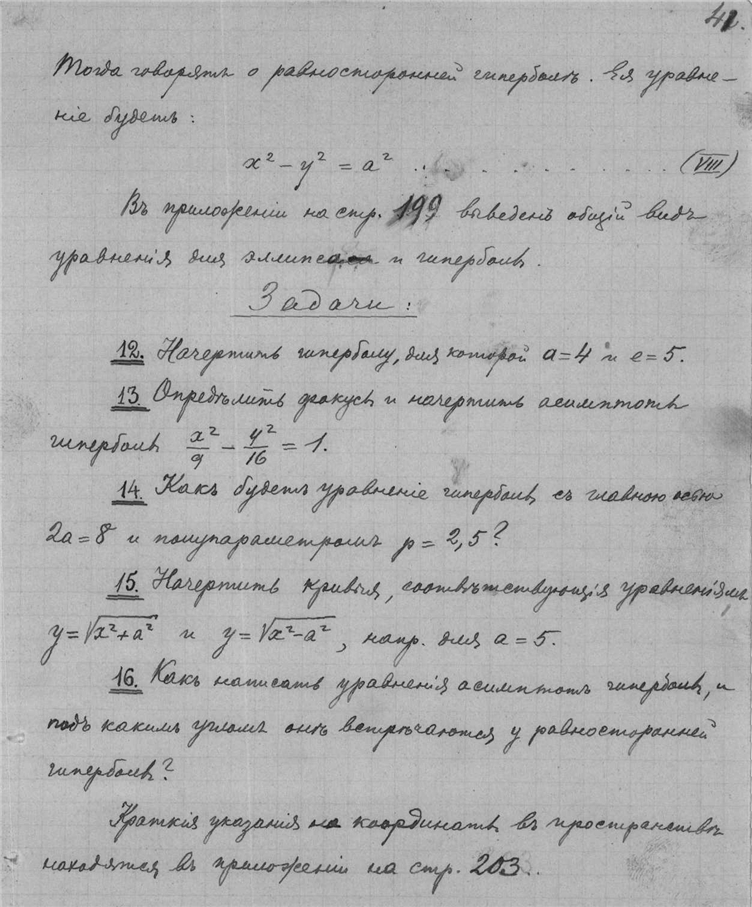 41.
Тогда говорятъ о равносторонней гиперболѣ. Ея уравне-
ніе будетъ:
x² – y² = a² . . . . . . . . . . (VIII)
Въ приложеніи на стр. 199 выведенъ общій видъ
уравненія для эллипса и гиперболы.
Задачи:
12. Начертить гиперболу, для которой a=4 и e=5.
13. Опредѣлить фокусы и начертить асимптоты
гиперболы x²/9 – y²/16 = 1.
14. Какъ будетъ уравненіе гиперболы съ главною осью
2a=8 и полупараметромъ p=2,5?
15. Начертить кривыя, соотвѣтствующія уравненіямъ
y=√x²+a² и y=√x²-a², напр. для a=5.
16. Какъ написать уравненія асимптотъ гиперболы, и
подъ какимъ угломъ онѣ встрѣчаются у равносторонней
гиперболы?
Краткія указанія на координаты въ пространствѣ
находятся въ приложеніи на стр. 203.